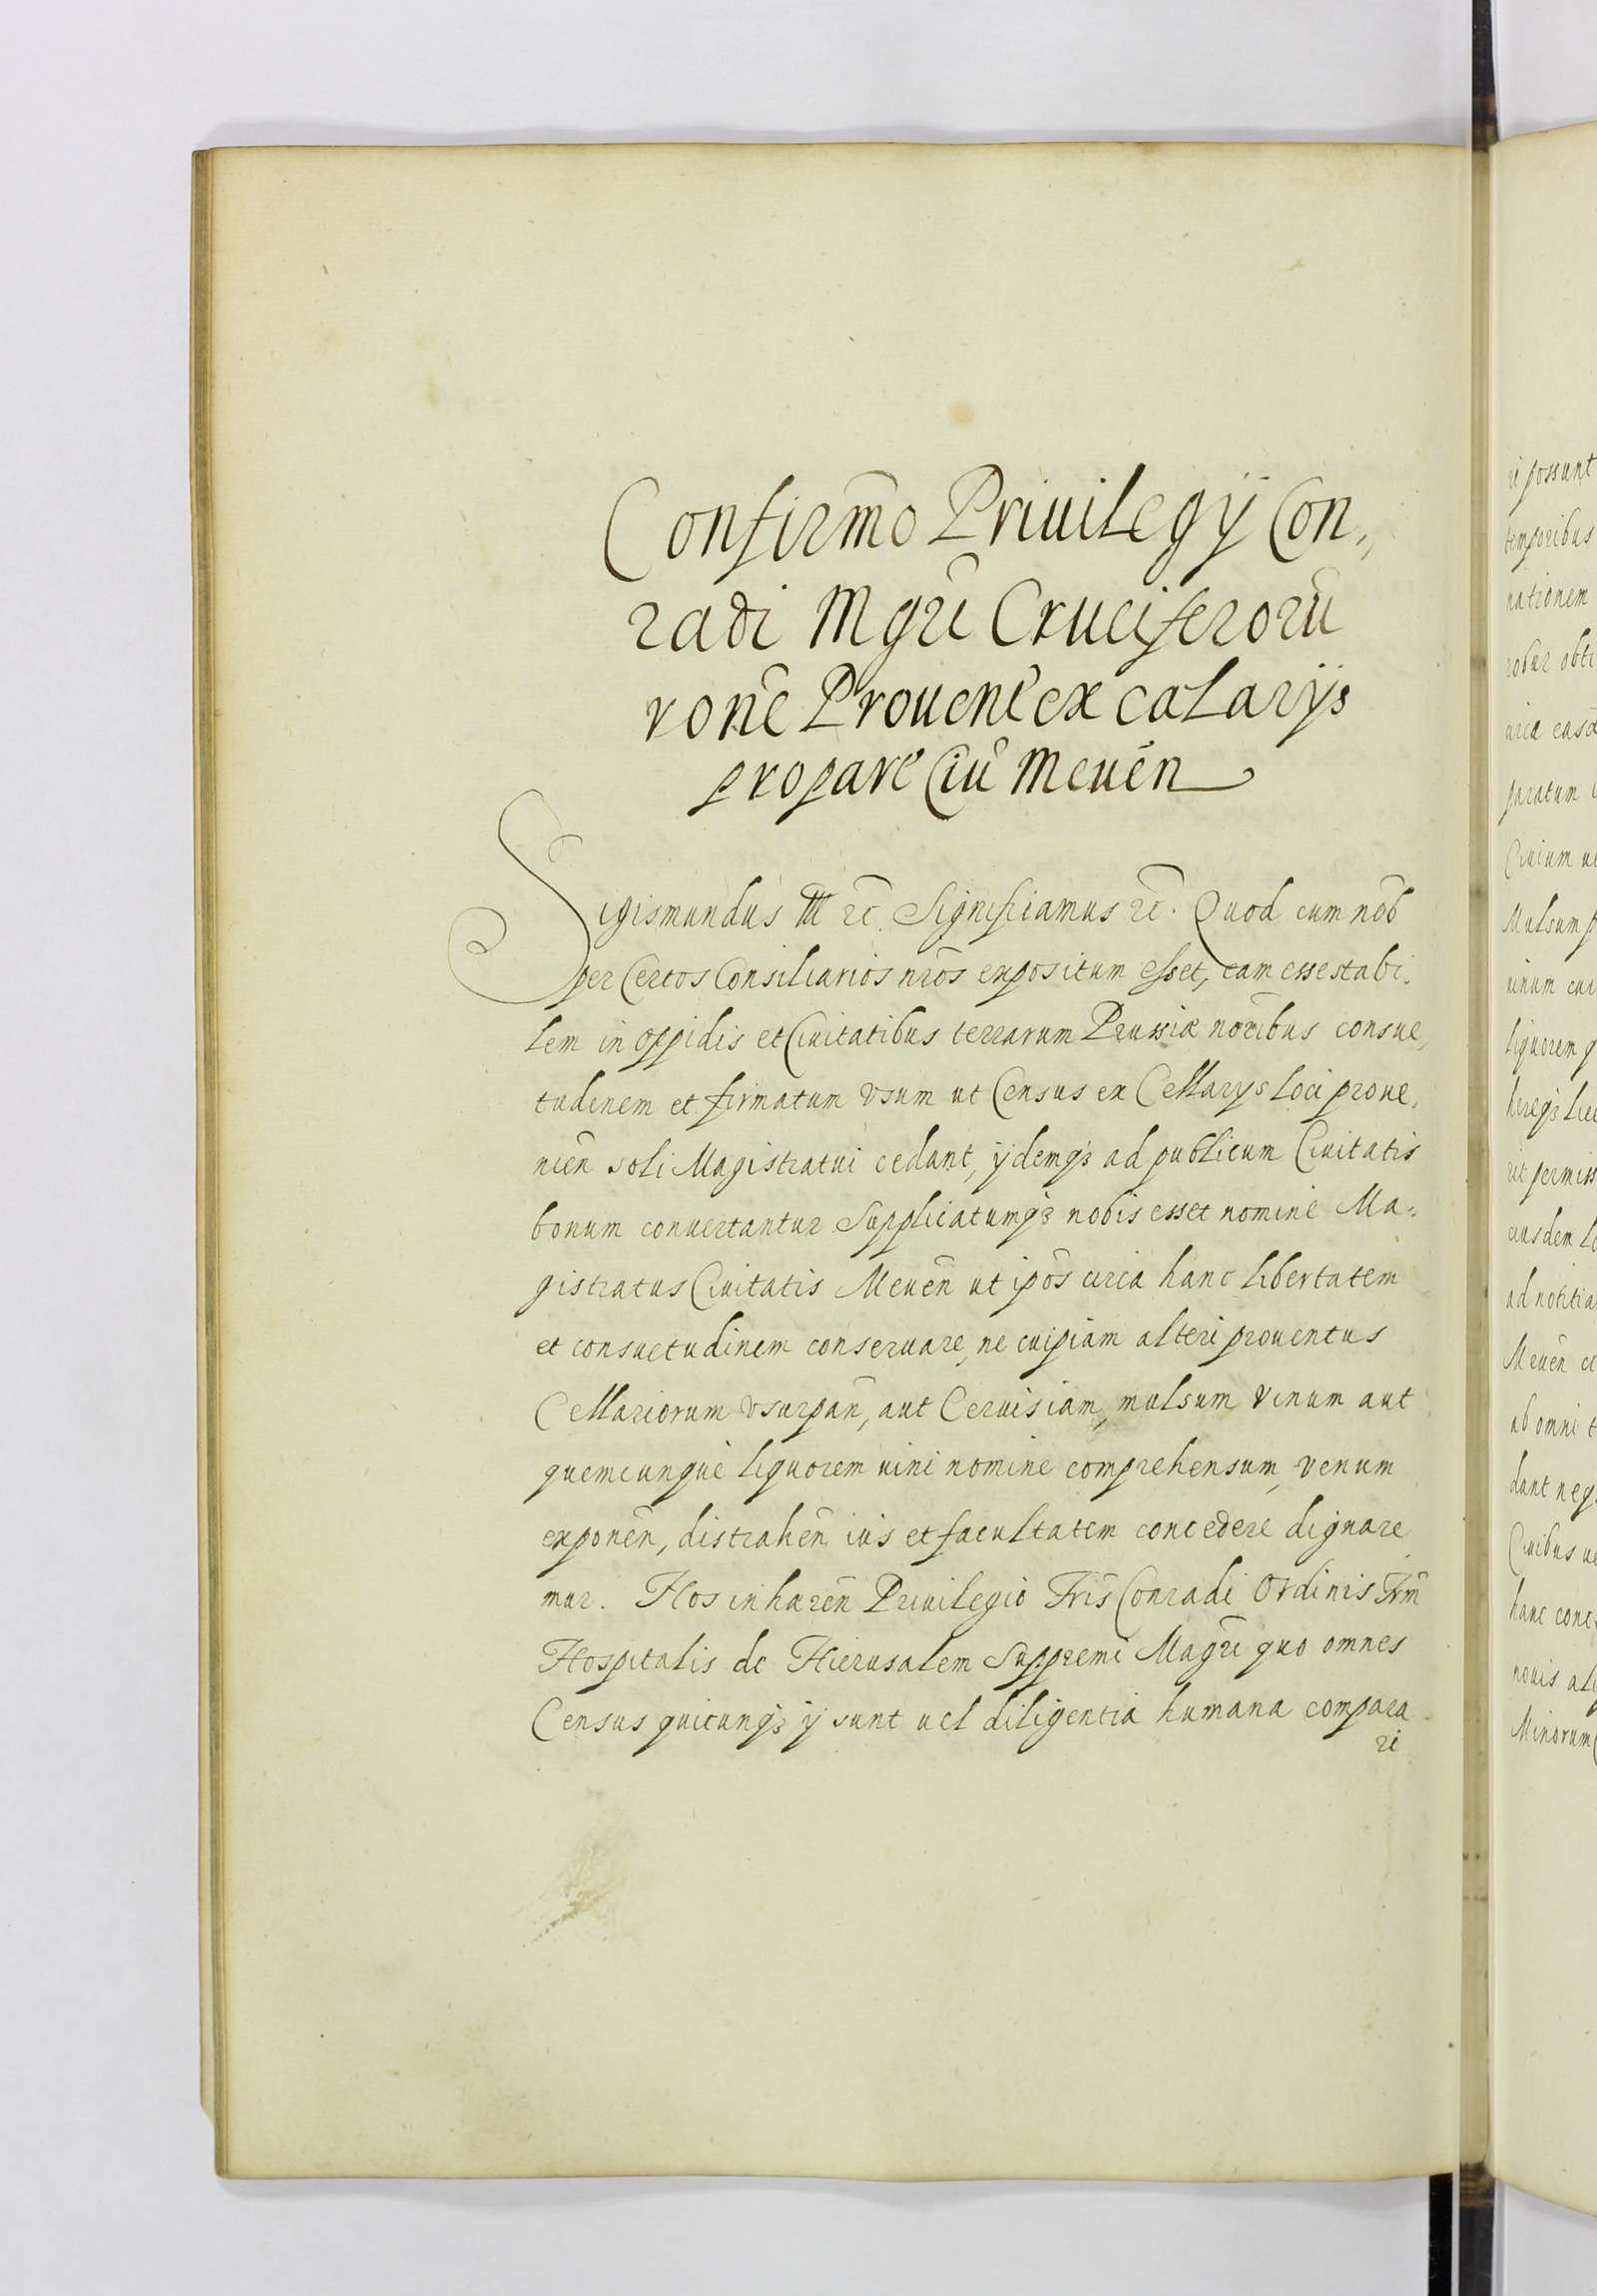 Confirm̃o Priuilegÿ Con„
radi Mgrĩ Cruciferorũ
rone᷉ Prouene᷉ ex caLarÿs
propare᷉ Ciũ Meuen᷉
Sigismundus III ꝛc̃. Significamus ꝛc̃. Quod cum nob᷉
per Certos Consiliarios nr̃os expositum esset, eam esse stabi,
lem in oppidis et Ciuitatibus terrarum Prussiæ nor᷉ibus consue,
tudinem et firmatum vsum ut Census ex Cellarys loci proue,
nien᷉ soli Magistratui cedant, ÿdemqꝫ ad publicum Ciuitatis
bonum conuertantur Supplicatumqꝫ nobis esset nomine Ma,
gistratus Ciuitatis Meuen᷉ ut ipo᷉s circa hanc libertatem
et consuetudinem conseruare, ne cuipiam alteri prouentus
Cellariorum vsurpan᷉, aut Ceruisiam, mulsum vinum aut
quemcunque liquorem uini nomine comprehensum, venum
exponen᷉, distrahen᷉ ius et facultatem concedere dignare
mur. Nos inhæren᷉ Priuilegio Fr̃is Conradi Ordinis Frm᷉
Hospitalis de Hierusalem Suppremi Magrĩ quo omnes
Census quicunqꝫ ÿ sunt uel diligentia humana compara
ri
ri possunt
temporibus
nationem
robur obti
paratum
Ciuium ue
Mulsum p
uinum
liquorem q
rit permiss
eiusdem
ad notitia
Meuen᷉
ab omni t
dant neqꝫ
Ciuibus ue
hanc conc
nouis
Minorum